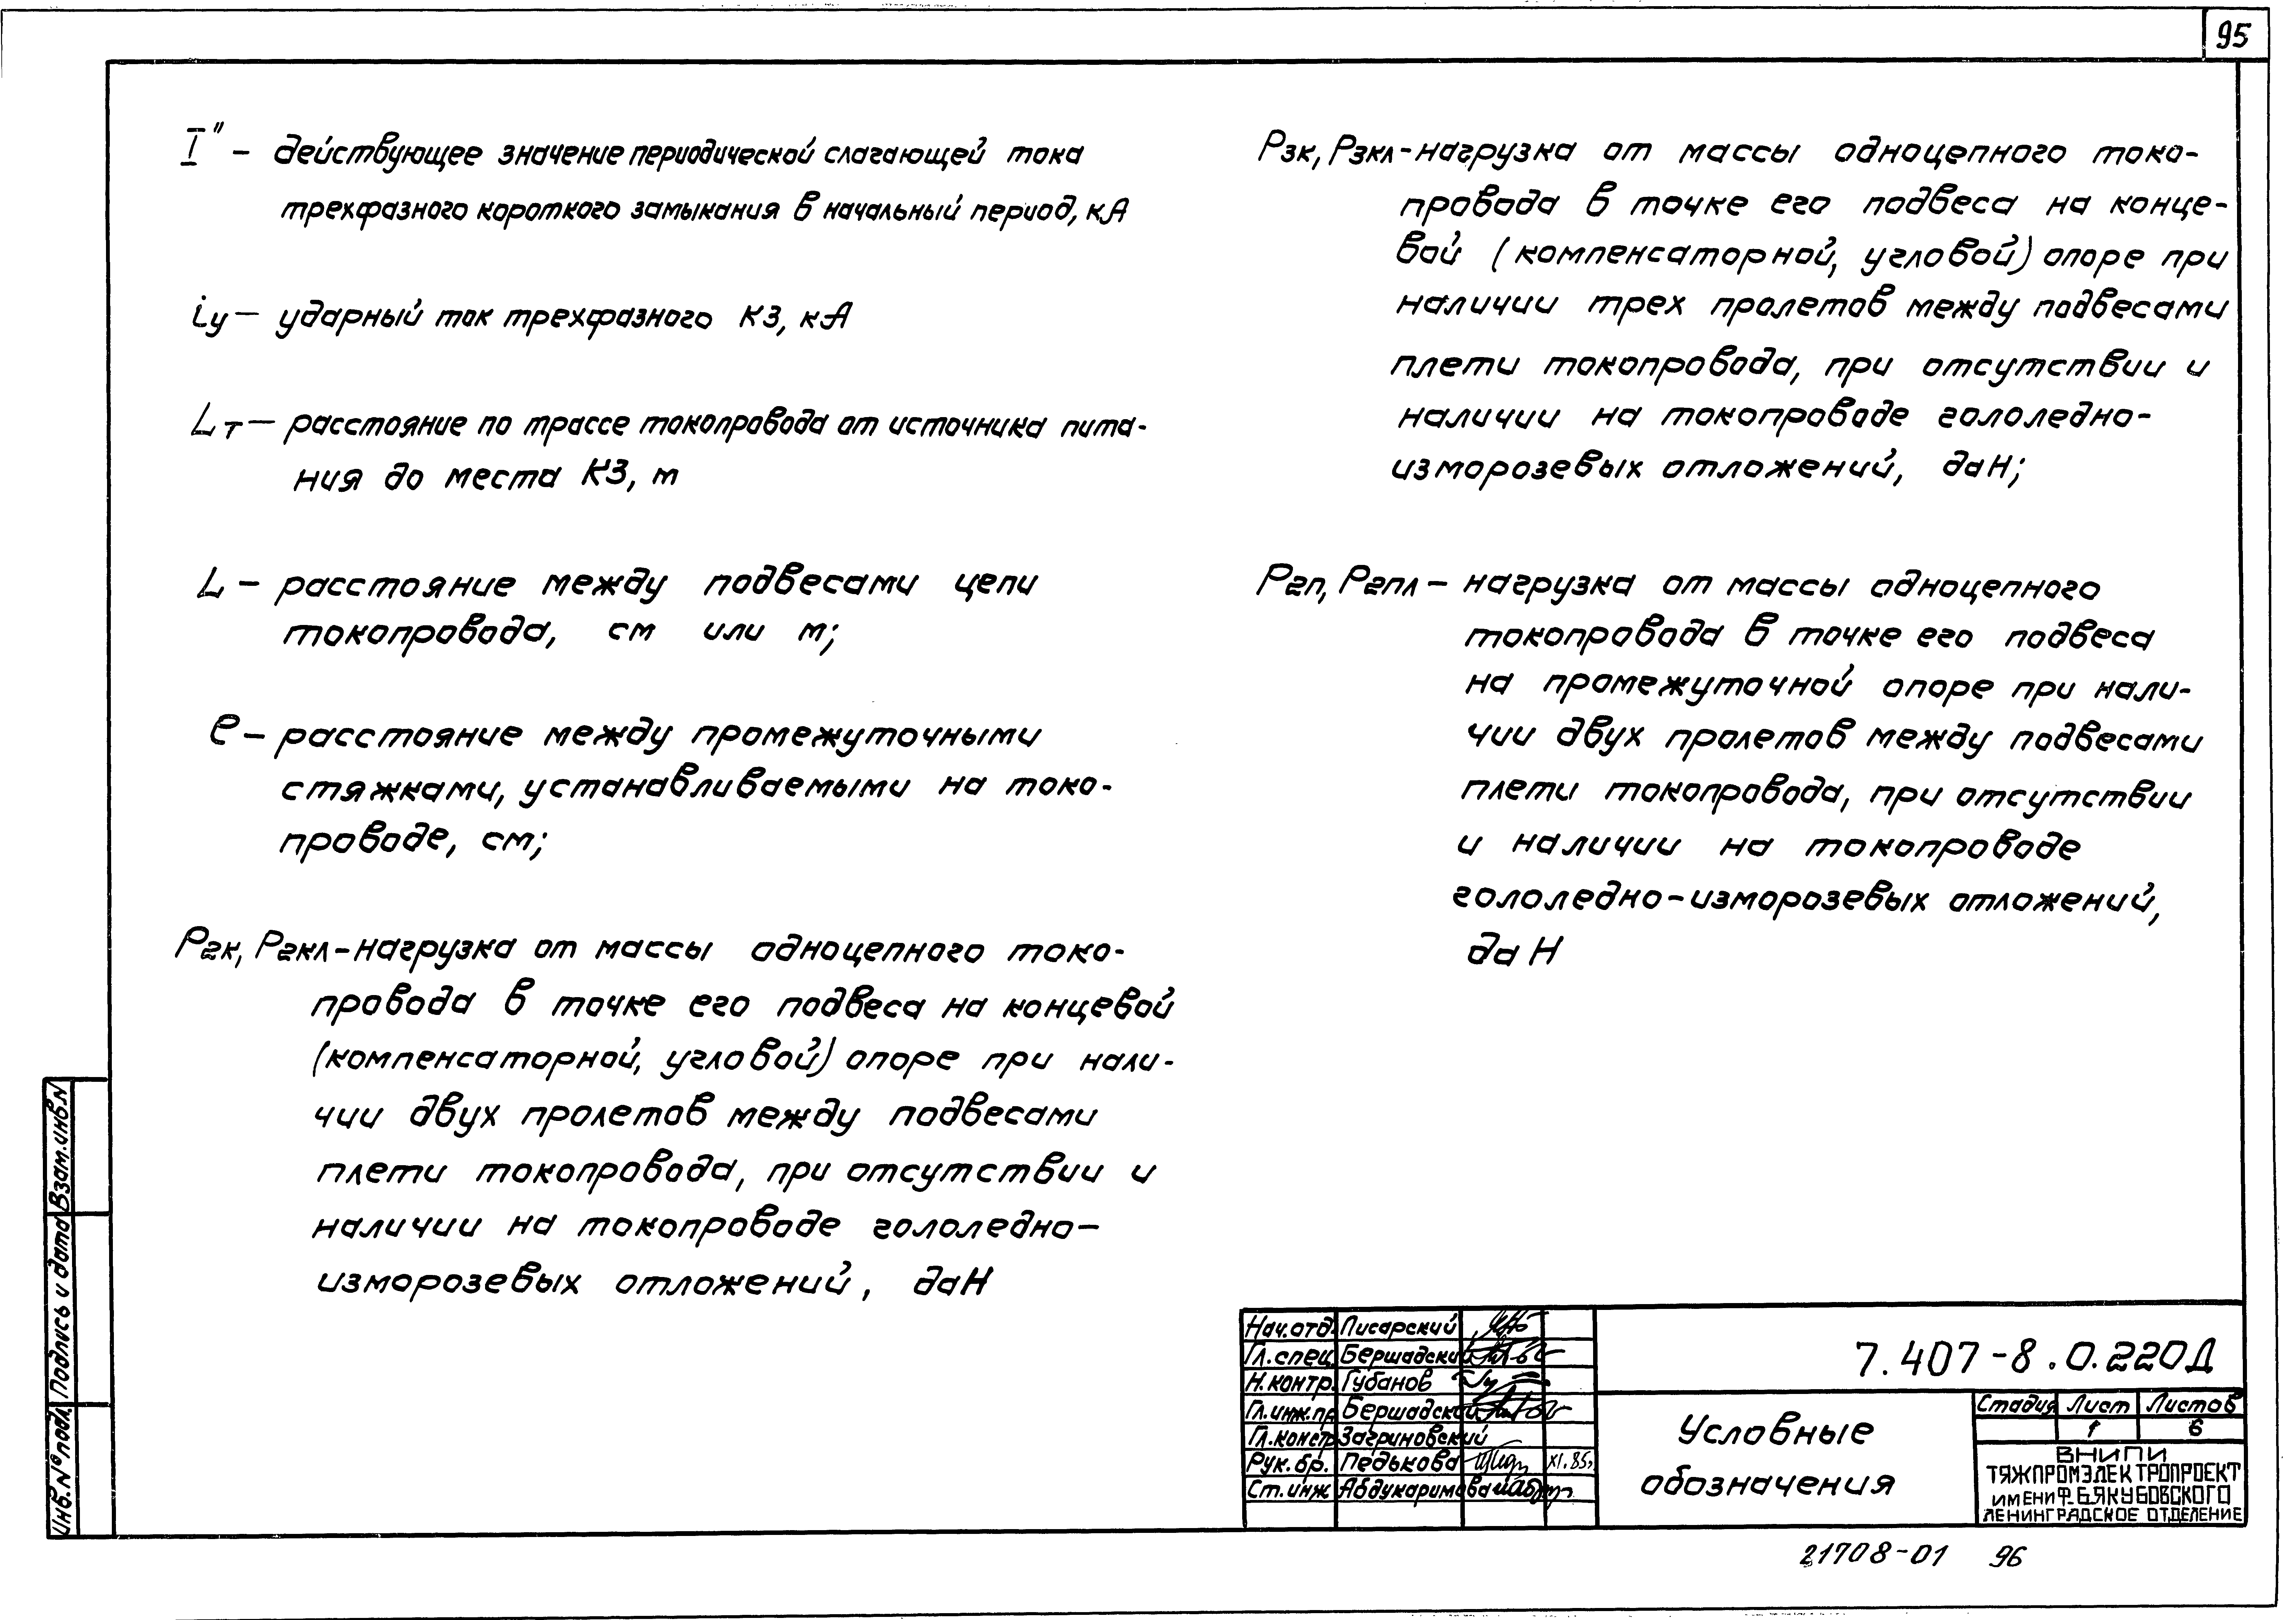 95
I″ – действующее значение периодической слагающей тока
трехфазного короткого замыкания в начальный период, кА
iу – ударный ток трехфазного КЗ, кА
Lт – расстояние по трассе токопровода от источника пита-
ния до места КЗ, м
L – расстояние между подвесами цепи
токопровода, см или м;
ℓ – расстояние между промежуточными
стяжками, устанавливаемыми на токо-
проводе, см;
P2к, P2кл – нагрузка от массы одноцепного токо-
провода в точке его подвеса на концевой
(компенсаторной, угловой) опоре при нали-
чии двух пролетов между подвесами
плети токопровода, при отсутствии и
наличии на токопроводе гололедно-
изморозевых отложений, даН
P3к, P3кл – нагрузка от массы одноцепного токо-
провода в точке его подвеса на конце-
вой (компенсаторной, угловой) опоре при
наличии трех пролетов между подвесами
плети токопровода, при отсутствии и
наличии на токопроводе гололедно-
изморозевых отложений, даН;
P2п, P2пл – нагрузка от массы одноцепного
токопровода в точке его подвеса
на промежуточной опоре при нали-
чии двух пролетов между подвесами
плети токопровода, при отсутствии
и наличии на токопроводе
гололедно-изморозевых отложений,
даН
Взам.инв.N
Подпись и дата
Инв.№подл.
Нач.отд. Писарский
Гл.спец. Бершадский
Н.контр. Губанов
Гл.инж.пр Бершадский
Гл.констр Загриновский
Рук.бр. Педькова XI.85г
Ст.инж Абдукаримова
7.407-8.0.220Д
Условные
обозначения
Стадия Лист Листов
1 6
ВНИПИ
ТЯЖПРОМЭЛЕКТРОПРОЕКТ
ИМЕНИ Ф.Б.ЯКУБОВСКОГО
ЛЕНИНГРАДСКОЕ ОТДЕЛЕНИЕ
21708-01 96